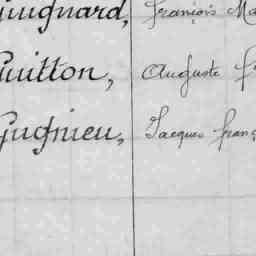 Guignard, François Ma
Guitton, Auguste f
Gugnieu, Jacques franç